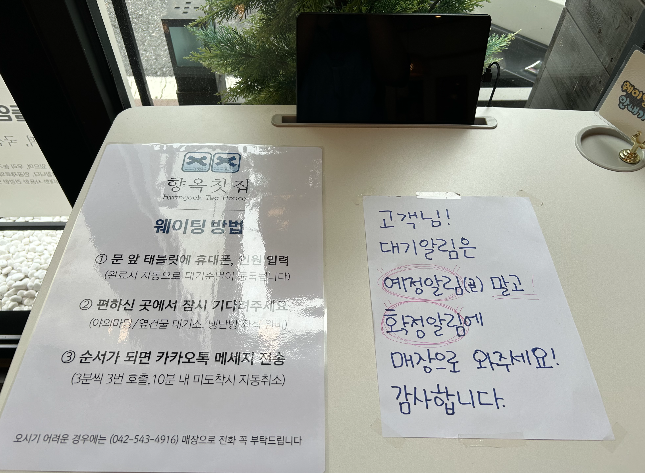 향옥찻집
Hyangok Tea House
웨이팅 방법
① 문 앞 태블릿에 휴대폰, 인원 입력
(완료시 자동으로 대기순번이 등록됩니다)
② 편하신 곳에서 잠시 기다려주세요
③ 순서가 되면 카카오톡 메세지 전송
(3분씩 3번 호출,10분 내 미도착시 자동취소)
오시기 어려운 경우에는 (042-543-4916) 매장으로 전화 꼭 부탁드립니다
고객님!
대기알림은
예정알림(은) 말고
확정알림에
매장으로 와주세요!
감사합니다.